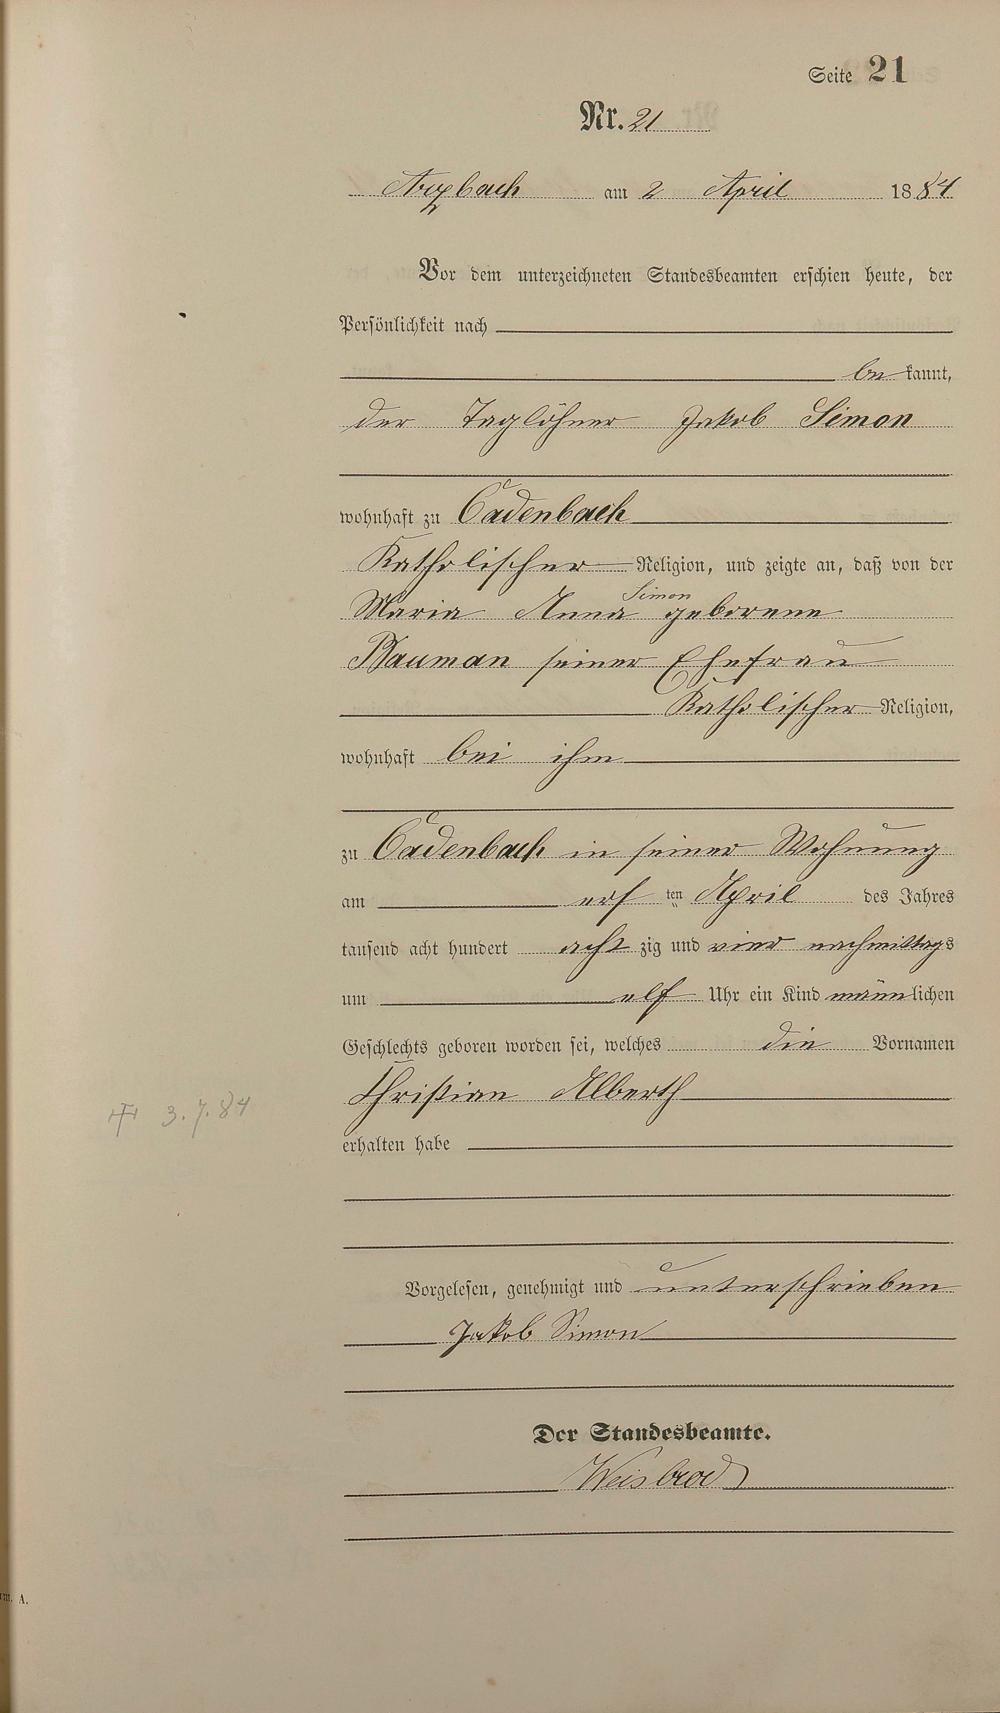 Seite 21
Nr. 21
Arzbach am 2 April 1884
Vor dem unterzeichneten Standesbeamten erschien heute, der
Persönlichkeit nach
bekannt,
der Taglöhner Jakob Simon
wohnhaft zu Cadenbach
Katholischer Religion, und zeigte an, daß von der
Simon
Maria Anna geborene
Bauman seiner Ehefrau
Katholischer Religion,
wohnhaft bei ihm
zu Cadenbach in seiner Wohnung
am ersten April des Jahres
tausend acht hundert acht zig und vier nachmittags
um elf Uhr ein Kind männlichen
Geschlechts geboren worden sei, welches die Vornamen
Christian Alberth
3.7.84
erhalten habe
Vorgelesen, genehmigt und unterschrieben
Jakob Simon
Der Standesbeamte.
Weisbrod
A.